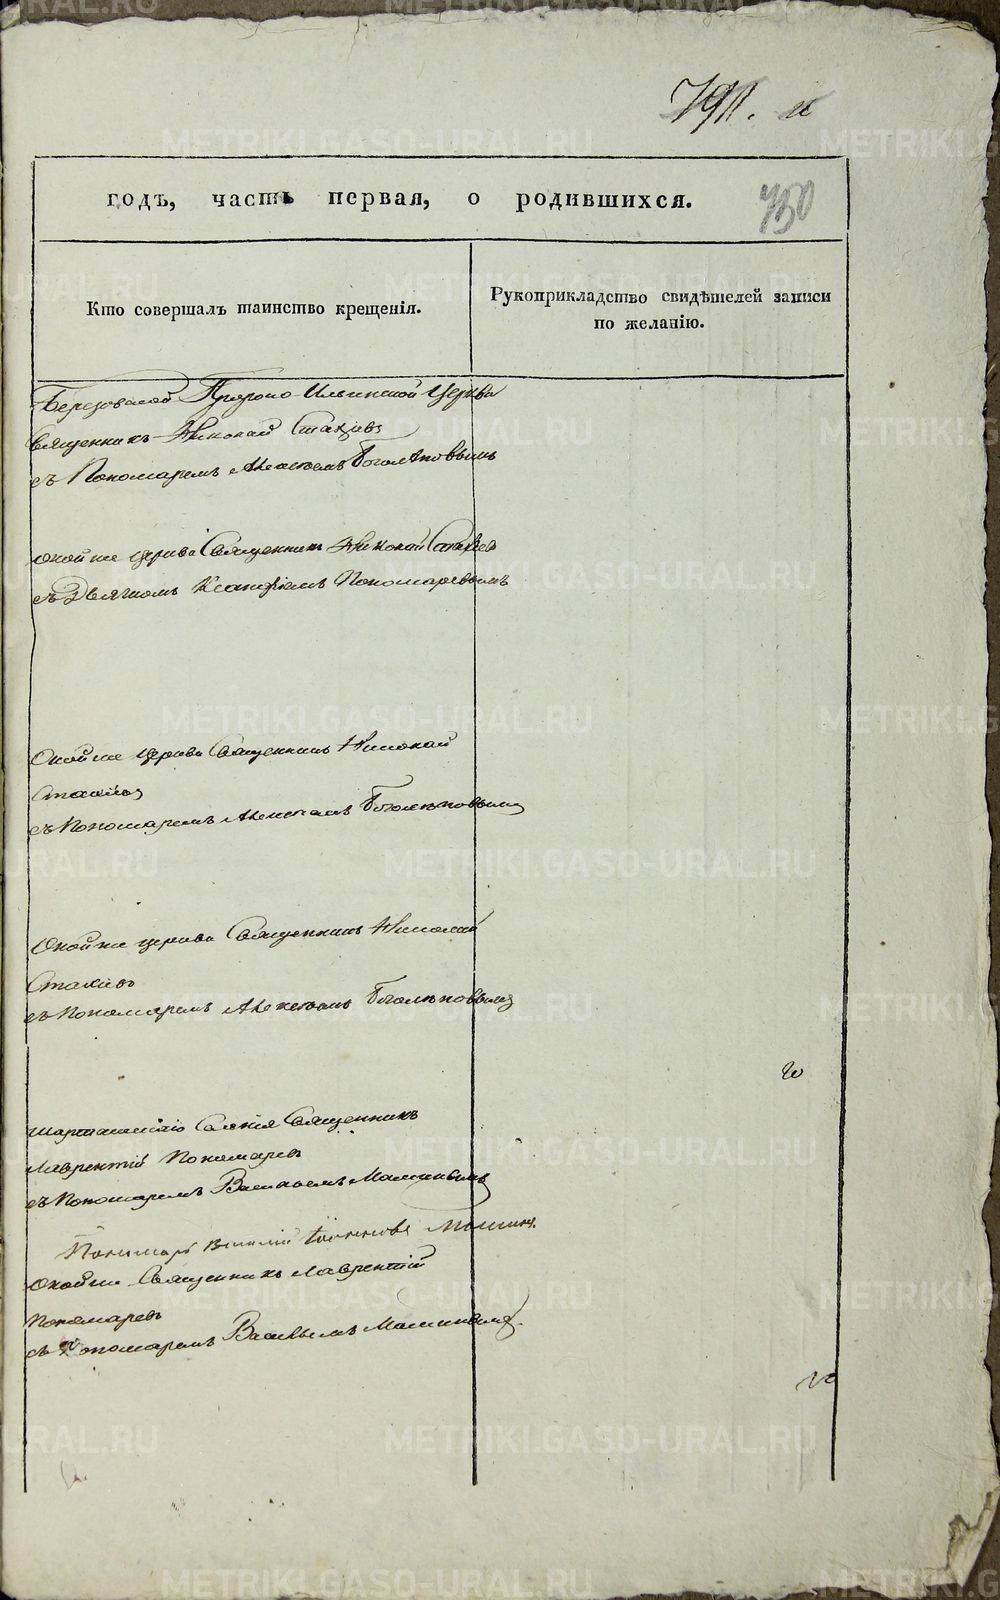 791.
годъ, часть первая, о родившихся.
750
Кто совершалъ таинство крещенія.
Рукоприкладство свидѣтелей записи
по желанію.
Березовской Пророко Ильинской Церкви
Священникъ Николай Стахіевъ
съ Пономаремъ Алексѣемъ Боголѣповымъ
Оной же церкви Священникъ Николай Стахіев
съ Дьячкомъ Ксанфіемъ Пономаревымъ
Оной же церкви Священникъ Николай
Стахіевъ
съ Пономаремъ Алексѣемъ Боголѣповымъ
Оной же церкви Священникъ Николай
Стахіевъ
съ Пономаремъ Алексѣемъ Боголѣповымъ
Шарташскаго Селенія Священникъ
Лаврентій Пономаревъ
съ Пономаремъ Васильемъ
Пономарь Василій
Оной же Священникъ Лаврентій
Пономаревъ
съ Пономаремъ Васильемъ
METRIKI.GASO-URAL.RU